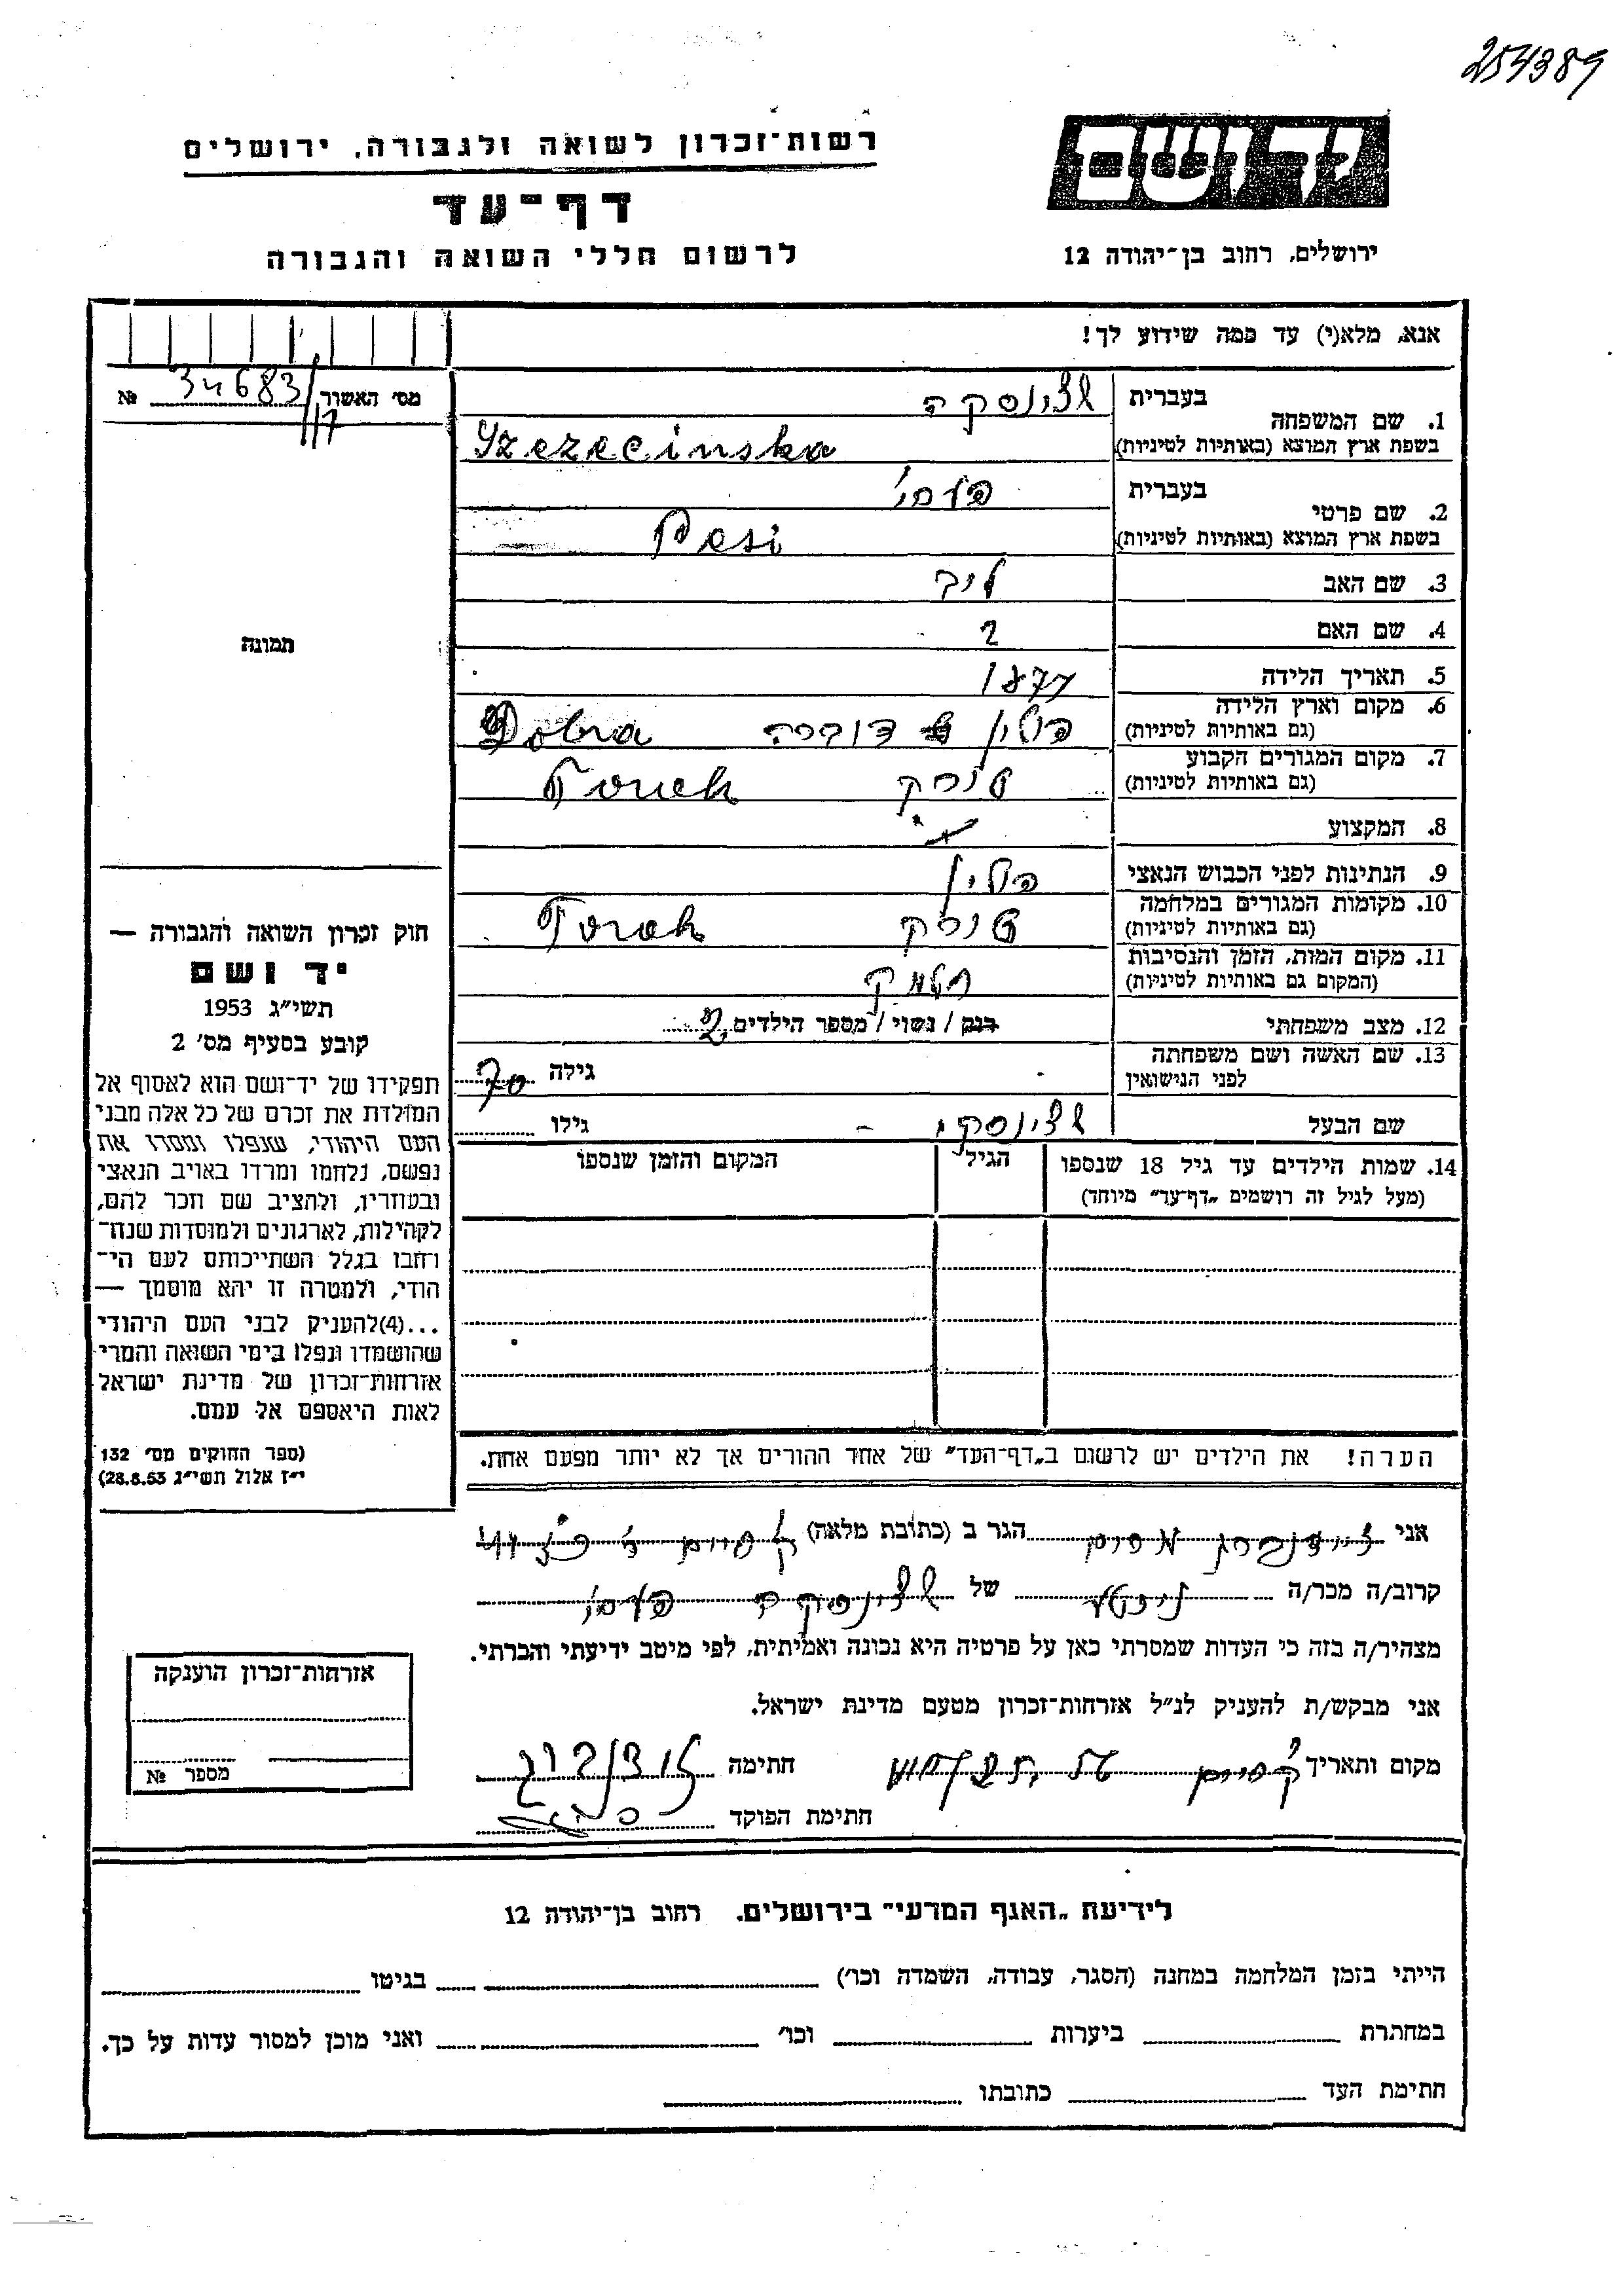 254389
רשות־זכרון לשואה ולגבורה, ירושלים
ידושם
דף־עד
לרשום חללי השואה והגבורה
ירושלים, רחוב בן־יהודה 12
אנא, מלא(י) עד כמה שידוע לך!
מס׳ האשור 34683/117 №
1. שם המשפחה
בעברית
בשפת ארץ המוצא (באותיות לטיניות)
2. שם פרטי
בעברית
בשפת ארץ המוצא (באותיות לטיניות) Pesi
3. שם האב לייב
4. שם האם ?
5. תאריך הלידה 1877
6. מקום וארץ הלידה
(גם באותיות לטיניות) פולין דוברה Dobra
7. מקום המגורים הקבוע
(גם באותיות לטיניות) טורק Tourek
8. המקצוע
9. הנתינות לפני הכבוש הנאצי פולין
10. מקומות המגורים במלחמה
(גם באותיות לטיניות) טורק Turek
11. מקום המות, הזמן והנסיבות
(המקום גם באותיות לטיניות) חלמנו
12. מצב משפחתי רוק / נשוי / מספר הילדים
13. שם האשה ושם משפחתה
לפני הנישואין
גילה 70
שם הבעל
גילו
14. שמות הילדים עד גיל 18 שנספו
(מעל לגיל זה רושמים „דף־עד״ מיוחד)
הגיל
המקום והזמן שנספו
הערה! את הילדים יש לרשום ב„דף־העד״ של אחד ההורים אך לא יותר מפעם אחת.
תמונה
חוק זכרון השואה והגבורה —
יד ושם
תשי״ג 1953
קובע בסעיף מס׳ 2
תפקידו של יד־ושם הוא לאסוף אל
המולדת את זכרם של כל אלה מבני
העם היהודי, שנפלו ומסרו את
נפשם, נלחמו ומרדו באויב הנאצי
ובעוזריו, ולהציב שם וזכר להם,
לקהילות, לארגונים ולמוסדות שנח־
רחבו בגלל השתייכותם לעם הי־
הודי, ולמטרה זו יהא מוסמך —
...(4)להעניק לבני העם היהודי
שהושמדו ונפלו בימי השואה והמרי
אזרחות־זכרון של מדינת ישראל
לאות היאספם אל עמם.
(ספר החוקים מס׳ 132
י״ז אלול תשי״ג 28.8.53)
אני הגר ב (כתובת מלאה)
קרוב/ה מכר/ה של
מצהיר/ה בזה כי העדות שמסרתי כאן על פרטיה היא נכונה ואמיתית, לפי מיטב ידיעתי והכרתי.
אני מבקש/ת להעניק לנ״ל אזרחות־זכרון מטעם מדינת ישראל.
מקום ותאריך חתימה
חתימת הפוקד
אזרחות־זכרון הוענקה
מספר №
לידיעת „האגף המדעי״ בירושלים, רחוב בן־יהודה 12
הייתי בזמן המלחמה במחנה (הסגר, עבודה, השמדה וכו׳) בגיטו
במחתרת ביערות וכו׳ ואני מוכן למסור עדות על כך.
חתימת העד כתובתו